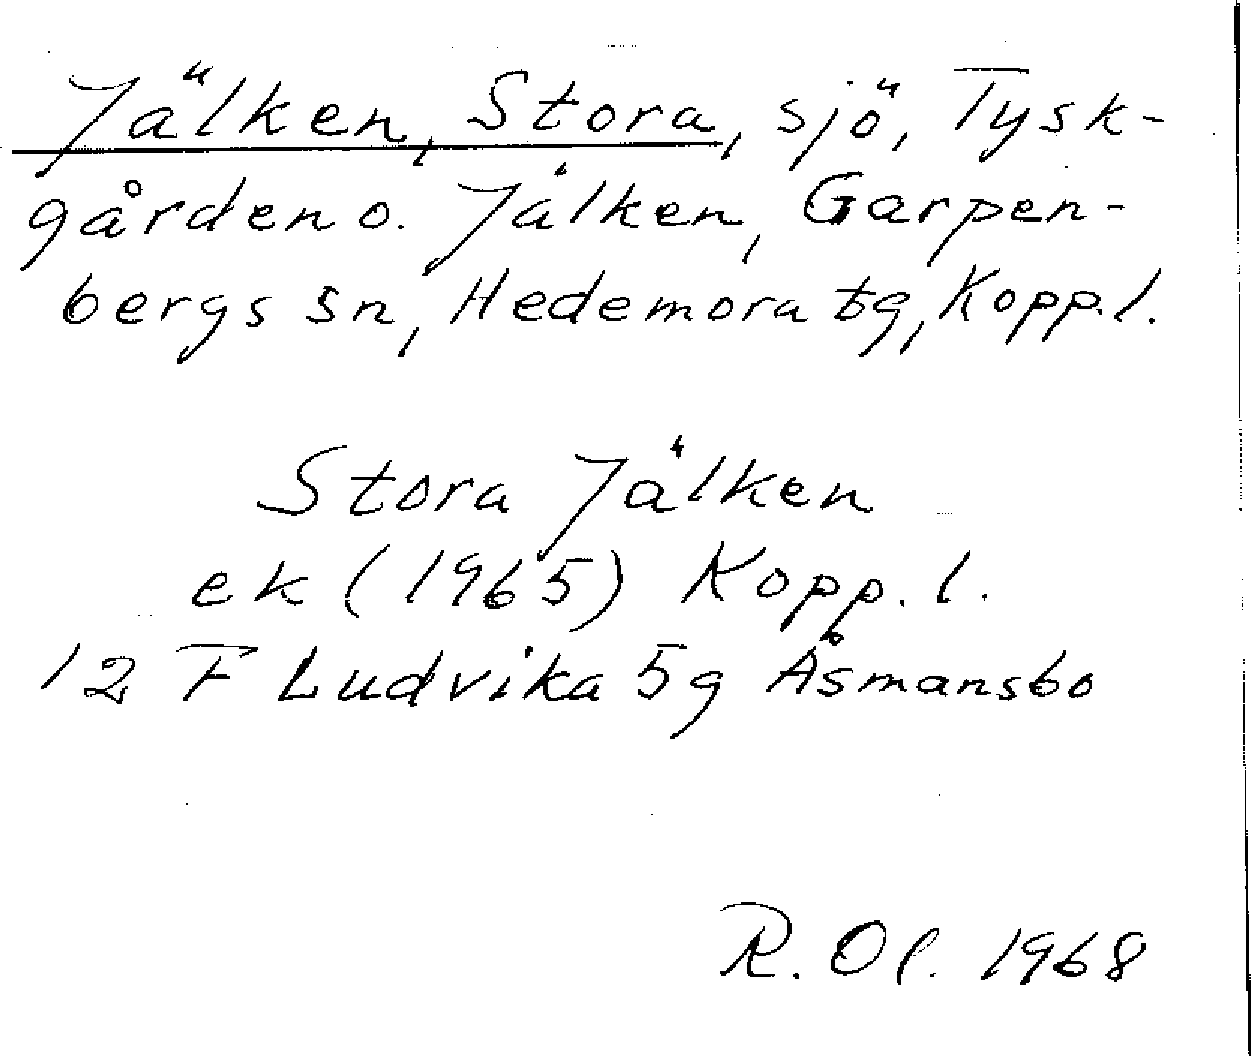 Jälken, Stora, sjö, Tysk-
gården o. Jälken, Garpen-
bergs sn, Hedemora tg, Kopp.l.
Stora Jälken
ek (1965) Kopp. l.
12 F Ludvika 5g Åsmansbo
R. Ol. 1968